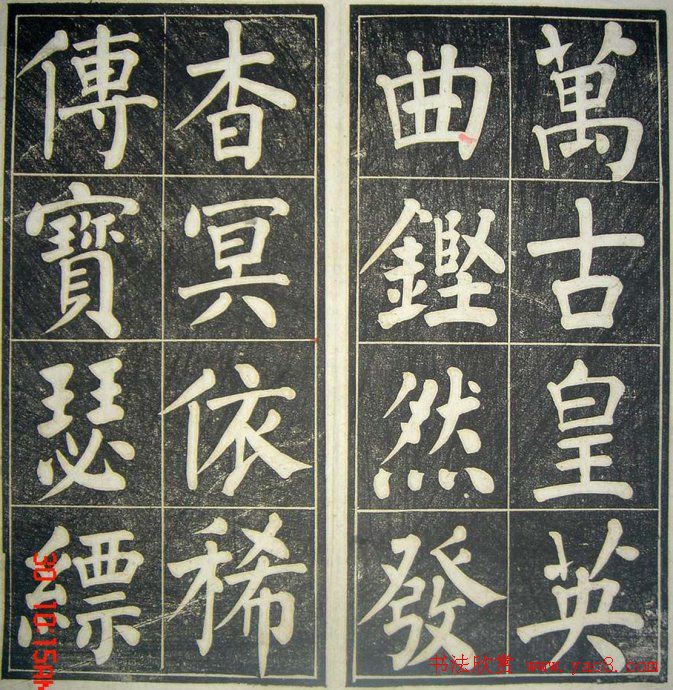 萬古皇英
曲鏗然發
杳冥依稀
傳寶瑟縹
书法欣赏 www.yac8.com